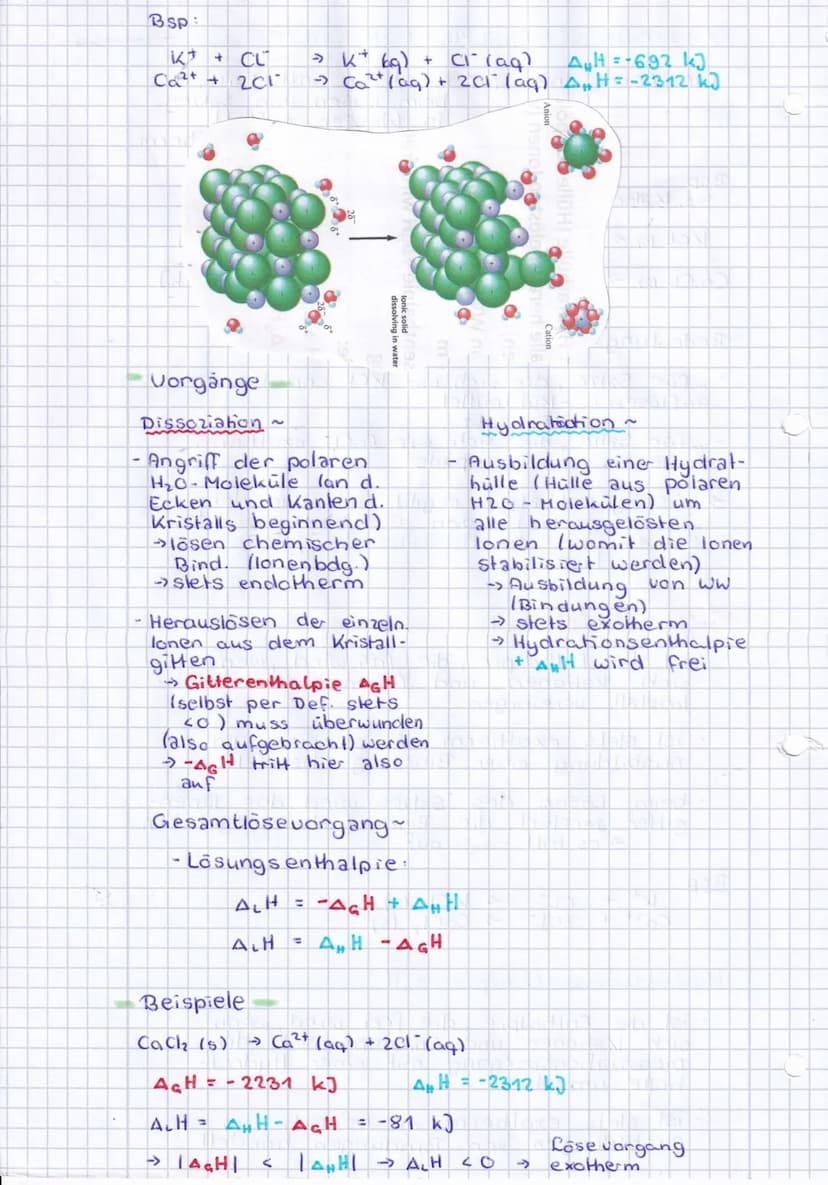 Bsp:
K⁺ + Cl⁻ → K⁺ (aq) + Cl⁻ (aq) ΔHH = -692 kJ
Ca²⁺ + 2Cl⁻ → Ca²⁺ (aq) + 2Cl⁻ (aq) ΔHH = -2312 kJ
Anion
δ⁺
2δ⁻
δ⁺
2δ⁻
δ⁺
δ⁺
Ionic solid
dissolving in water
Cation
Vorgänge
Dissoziation ~
- Angriff der polaren
H₂O-Moleküle (an d.
Ecken und Kanten d.
Kristalls beginnend)
→ lösen chemischer
Bind. (Ionenbdg.)
→ stets endotherm
- Herauslösen der einzeln.
Ionen aus dem Kristall-
gitter
→ Gitterenthalpie ΔGH
(selbst per Def. stets
<0) muss überwunden
(also aufgebracht) werden
→ -ΔGH tritt hier also
auf
Hydratation ~
- Ausbildung einer Hydrat-
hülle (Hülle aus polaren
H2O-Molekülen) um
alle herausgelösten
Ionen (womit die Ionen
stabilisiert werden)
→ Ausbildung von WW
(Bindungen)
→ stets exotherm
→ Hydrationsenthalpie
+ ΔHH wird frei
Gesamtlösevorgang ~
- Lösungsenthalpie:
ΔLH = -ΔGH + ΔHH
ΔLH = ΔHH - ΔGH
Beispiele
CaCl₂ (s) → Ca²⁺ (aq) + 2Cl⁻ (aq)
ΔGH = -2231 kJ ΔHH = -2312 kJ
ΔLH = ΔHH - ΔGH = -81 kJ
→ |ΔGH| < |ΔHH| → ΔLH < 0 → Lösevorgang
exotherm